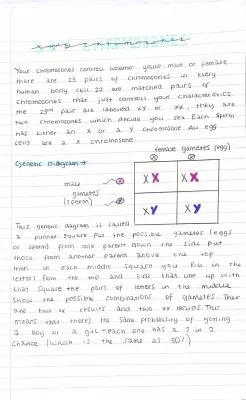 X and Y Chromosomes
Your chromosomes control whether you're male or female
there are 23 pairs of chromosomes in every
human body cell. 22 are matched pairs of
chromosomes that just control your characteristics.
the 23rd pair are labelled XY or XX, they are
two chromosomes which decide you sex. Each sperm
has either an X or a Y chromosome. All egg
cells are a X chromosome.
female gametes (egg)
Genetic Diagram →
X X
male
gametes
(sperm)
X
Y
X X
X X
X Y
X Y
This genetic diagram is called
a punner square. Put the possible gametes (eggs
or sperm) from one parent down the side put
those from another parent above the top
then in each middle square you fill in the
letters from the top and side that line up with
that square. the pairs of letters in the middle
show the possible combinations of gametes. There
are two XX results and two XY results. This
means that there's the same probability of getting
a boy or a girl - each one has a 1 in 2
chance (which is the same as 50%)